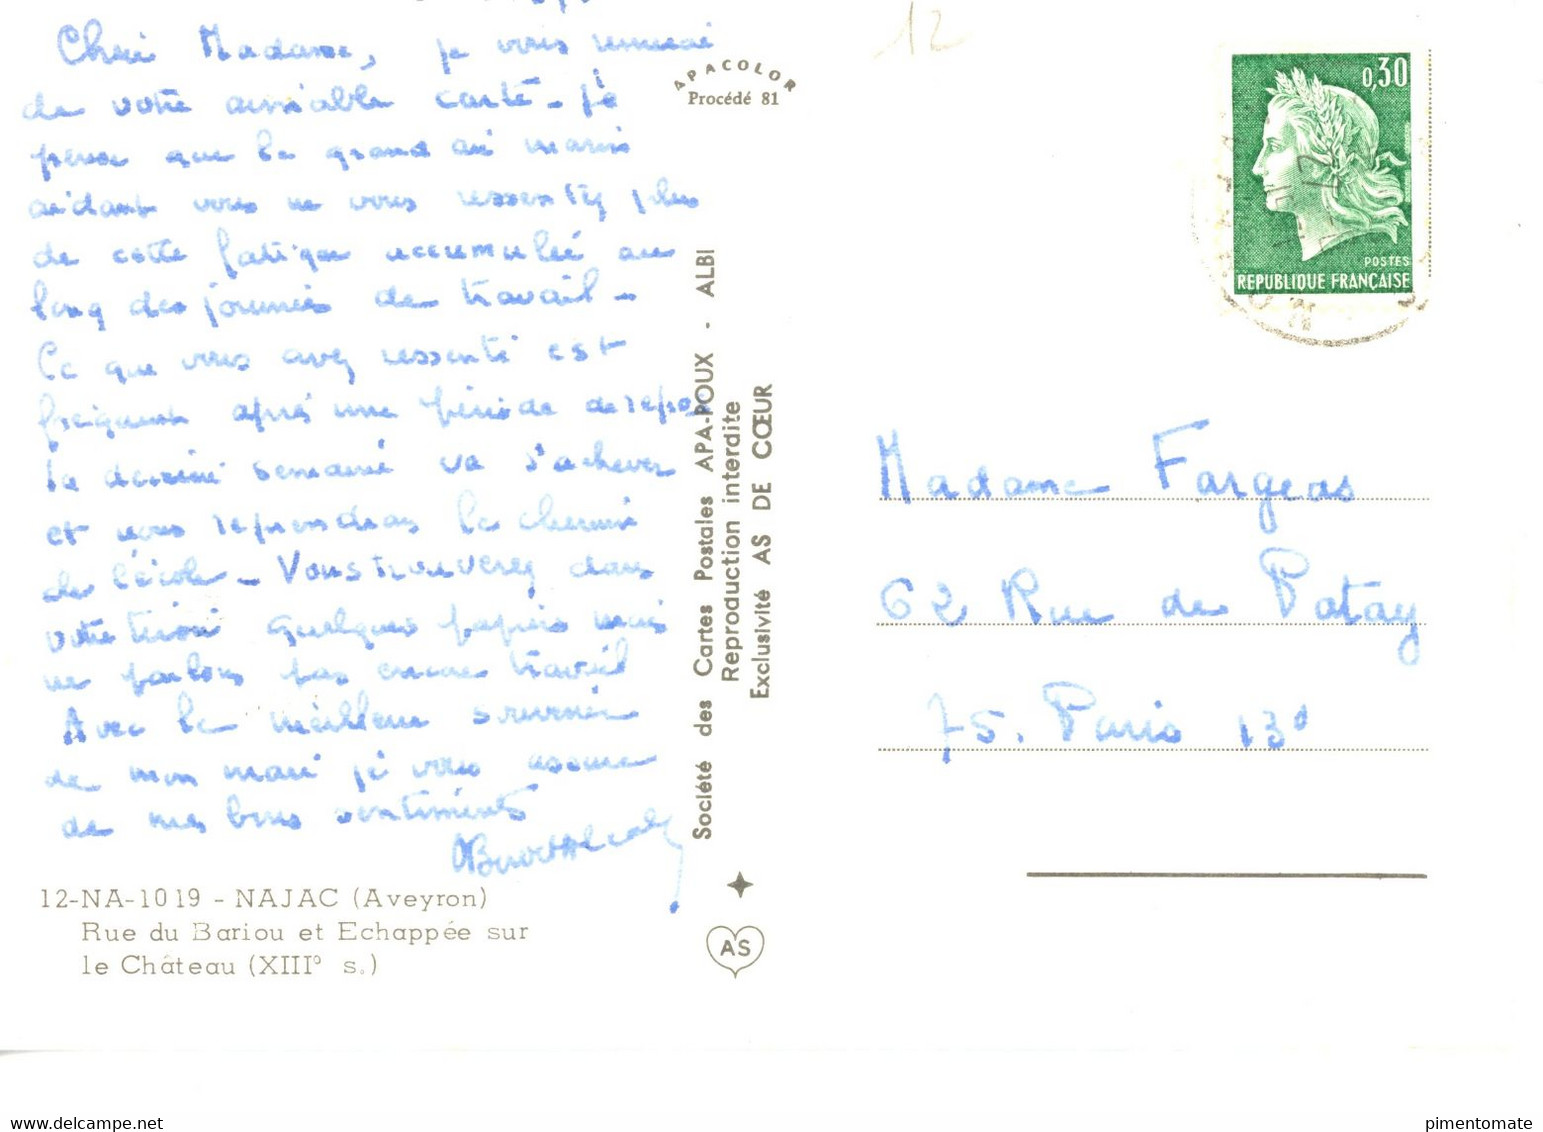 Chère Madame, je vous remercie
de votre aimable carte - je
pense que le grand air marin
aidant vous ne vous ressentez plus
de cette fatigue accumulée au
long des journées de travail -
Ce que vous avez ressenti est
fréquent après une période de repos
la dernière semaine va s'achever
et nous reprendrons le chemin
de l'école - Vous trouverez dans
votre tiroir quelques papiers mais
ne parlons pas encore travail
Avec le meilleur souvenir
de mon mari je vous assure
de mes bons sentiments
12-NA-1019 - NAJAC (Aveyron)
Rue du Bariou et Echappée sur
le Château (XIII° s.)
APACOLOR
Procédé 81
Société des Cartes Postales APA-POUX - ALBI
Reproduction interdite
Exclusivité AS DE CŒUR
AS
12
0,30
POSTES
REPUBLIQUE FRANÇAISE
Madame Fargeas
62 Rue de Patay
75. Paris 13e
delcampe.net
pimentomate